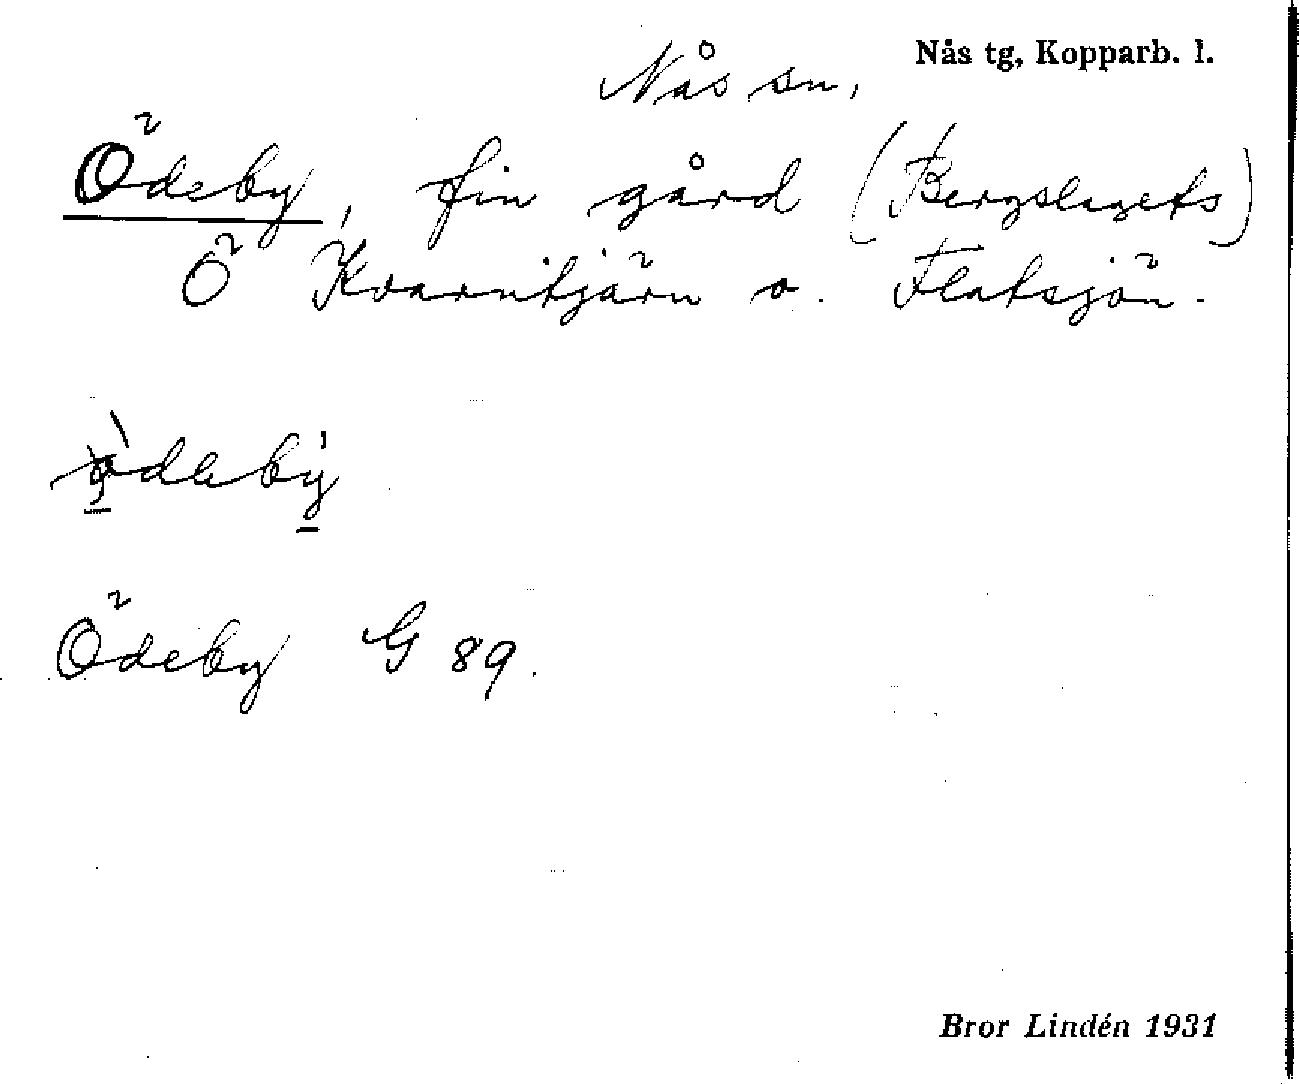 Nås tg, Kopparb. l.
Nås sn,
Ödeby, fin gård (Bergslagets)
Ö Kvarntjärn o. Flatsjön.
Ödeby G 89.
Bror Lindén 1931